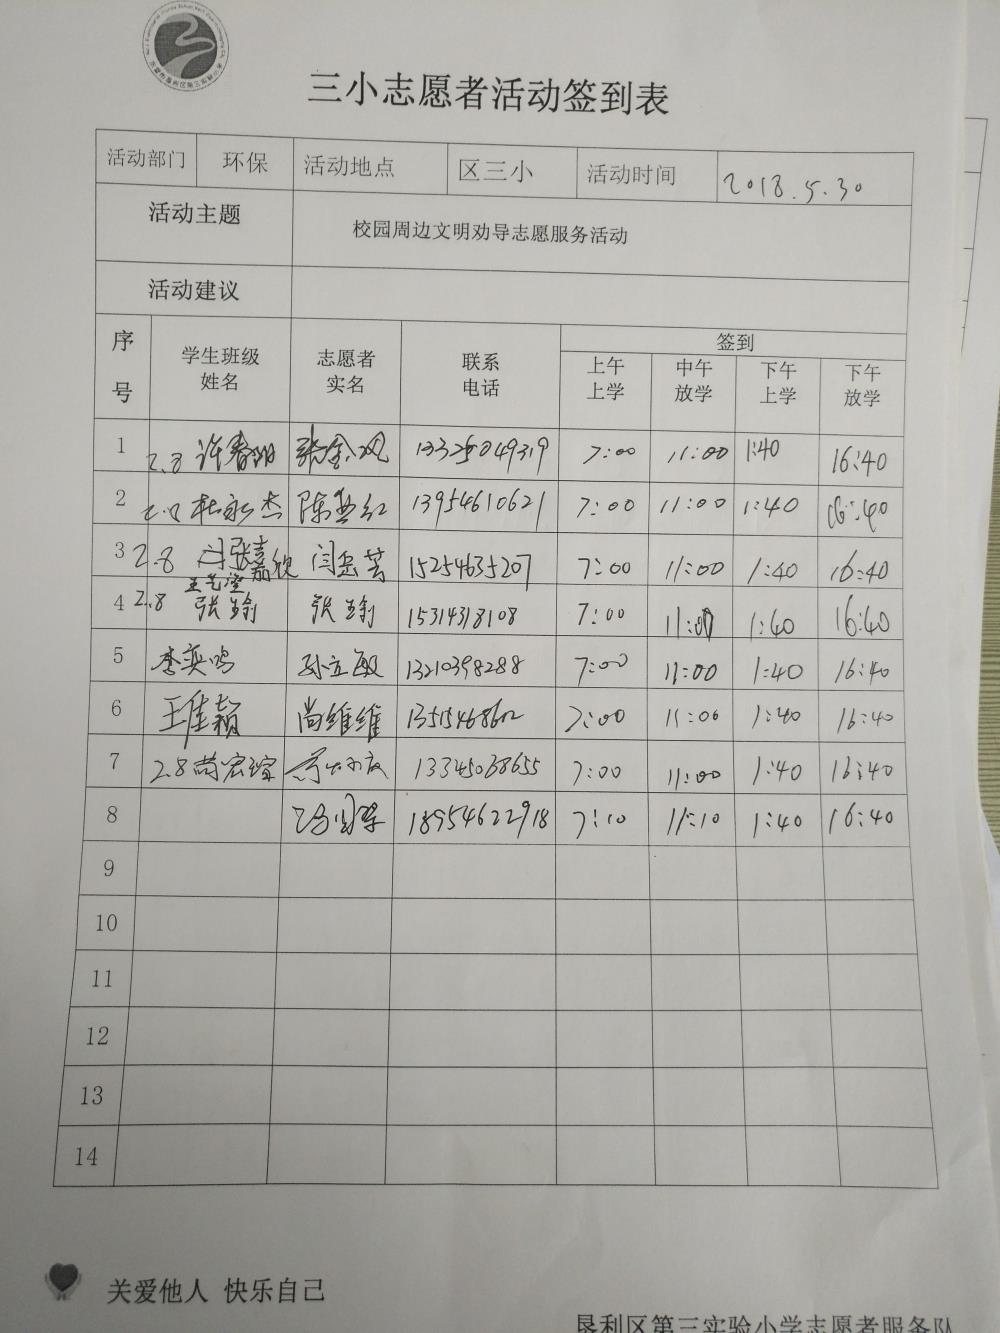 三小志愿者活动签到表
活动部门 环保 活动地点 区三小 活动时间 2018.5.30
活动主题 校园周边文明劝导志愿服务活动
活动建议
序号 学生班级姓名 志愿者实名 联系电话 签到
上午上学 中午放学 下午上学 下午放学
1 2.8 许春阳 13325049319 7:00 11:00 1:40 16:40
2 杜永杰 13954610621 7:00 11:00 1:40 16:40
3 2.8 闫张嘉欣 闫岳芸 15254635207 7:00 11:00 1:40 16:40
4 2.8 张 张 15314318108 7:00 11:00 1:40 16:40
5 李奕鸣 孙立敏 13210398288 7:00 11:00 1:40 16:40
6 王佳颖 尚维维 7:00 11:00 1:40 16:40
7 2.8 尚宏 13345068655 7:00 11:00 1:40 16:40
8 18954622918 7:10 11:10 1:40 16:40
9
10
11
12
13
14
关爱他人 快乐自己
垦利区第三实验小学志愿者服务队